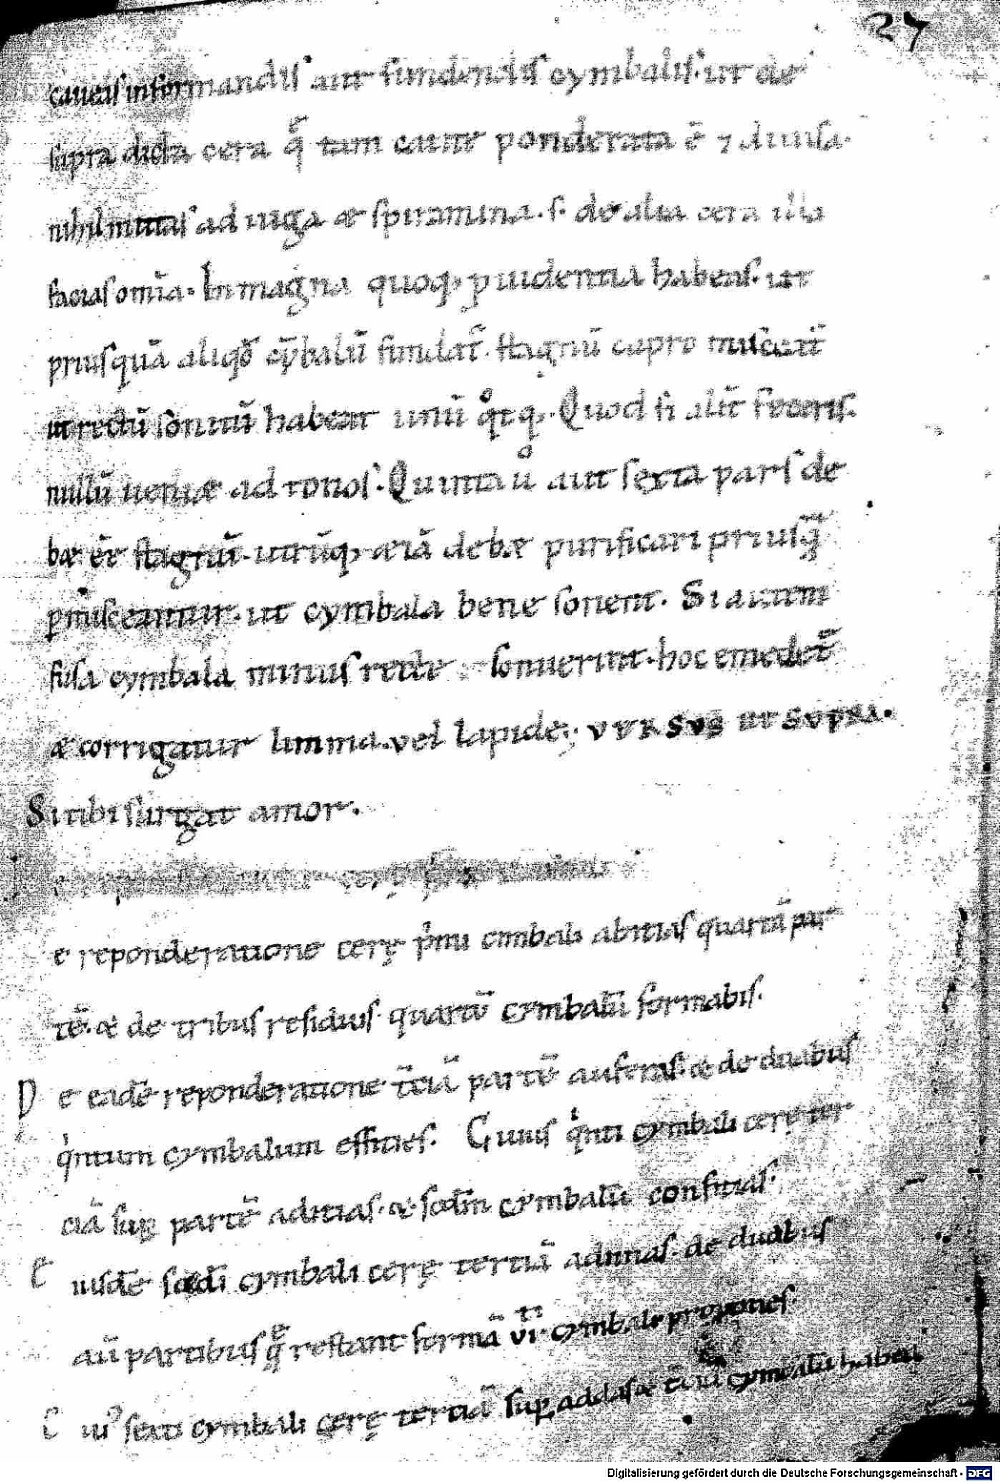 27
caueas informandis aut fundendis cymbalis. ut de
supra dicta cera q̄ tam caute ponderata ē ⁊ diuisa.
nihil mittas ad iuga æ spiramina. s. de alia cera illa
facias om̄ia. In magna quoq; prudentia habens. ut
priusquā aliqđ cȳbalū fundat᷒. stagnū cupro
ut rectū sonitū habeat unū qđq;. Quod si alit̄ feceris.
nullū ueniæ ad tonos. Quinta u̇ aut sexta pars de
bæ eē stagnū. utrūq; æiā debæ purificari priusq̄
misceantur. ut cymbala bene sonent. Si autem
fusa cymbala minus recte sonuerint. hoc emēdet᷒
æ corrigatur limma. vel lapide; VERSUS UT SUPRA.
Si tibi surgat amor.
cerę
e reponderatione cerę p̄mi cimbali abicias quartā par
tē. æ de tribus residuis quartū cymbalū formabis.
D e eadē reponderatione t̄ciā partē auferas æ de duabus
q̇ntum cymbalum efficies. Cuius q̇nti cymbali cerę ter
ciā sup partē adicias. æ scđm cymbalū conficias.
E iusdē scđi cymbali cerę tertiā adimas. de duabus
aū partibus q̄ restant formā vi.ti cymbali
C ui᷒ sexti cymbali cerę tertiā sup addas æ t̄ciū cymbalū habebis
Digitalisierung gefördert durch die Deutsche Forschungsgemeinschaft - DFG